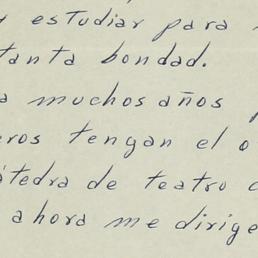 estudiar para
tanta bondad.
a muchos años
eros tengan el o
átedra de teatro c
ahora me dirige